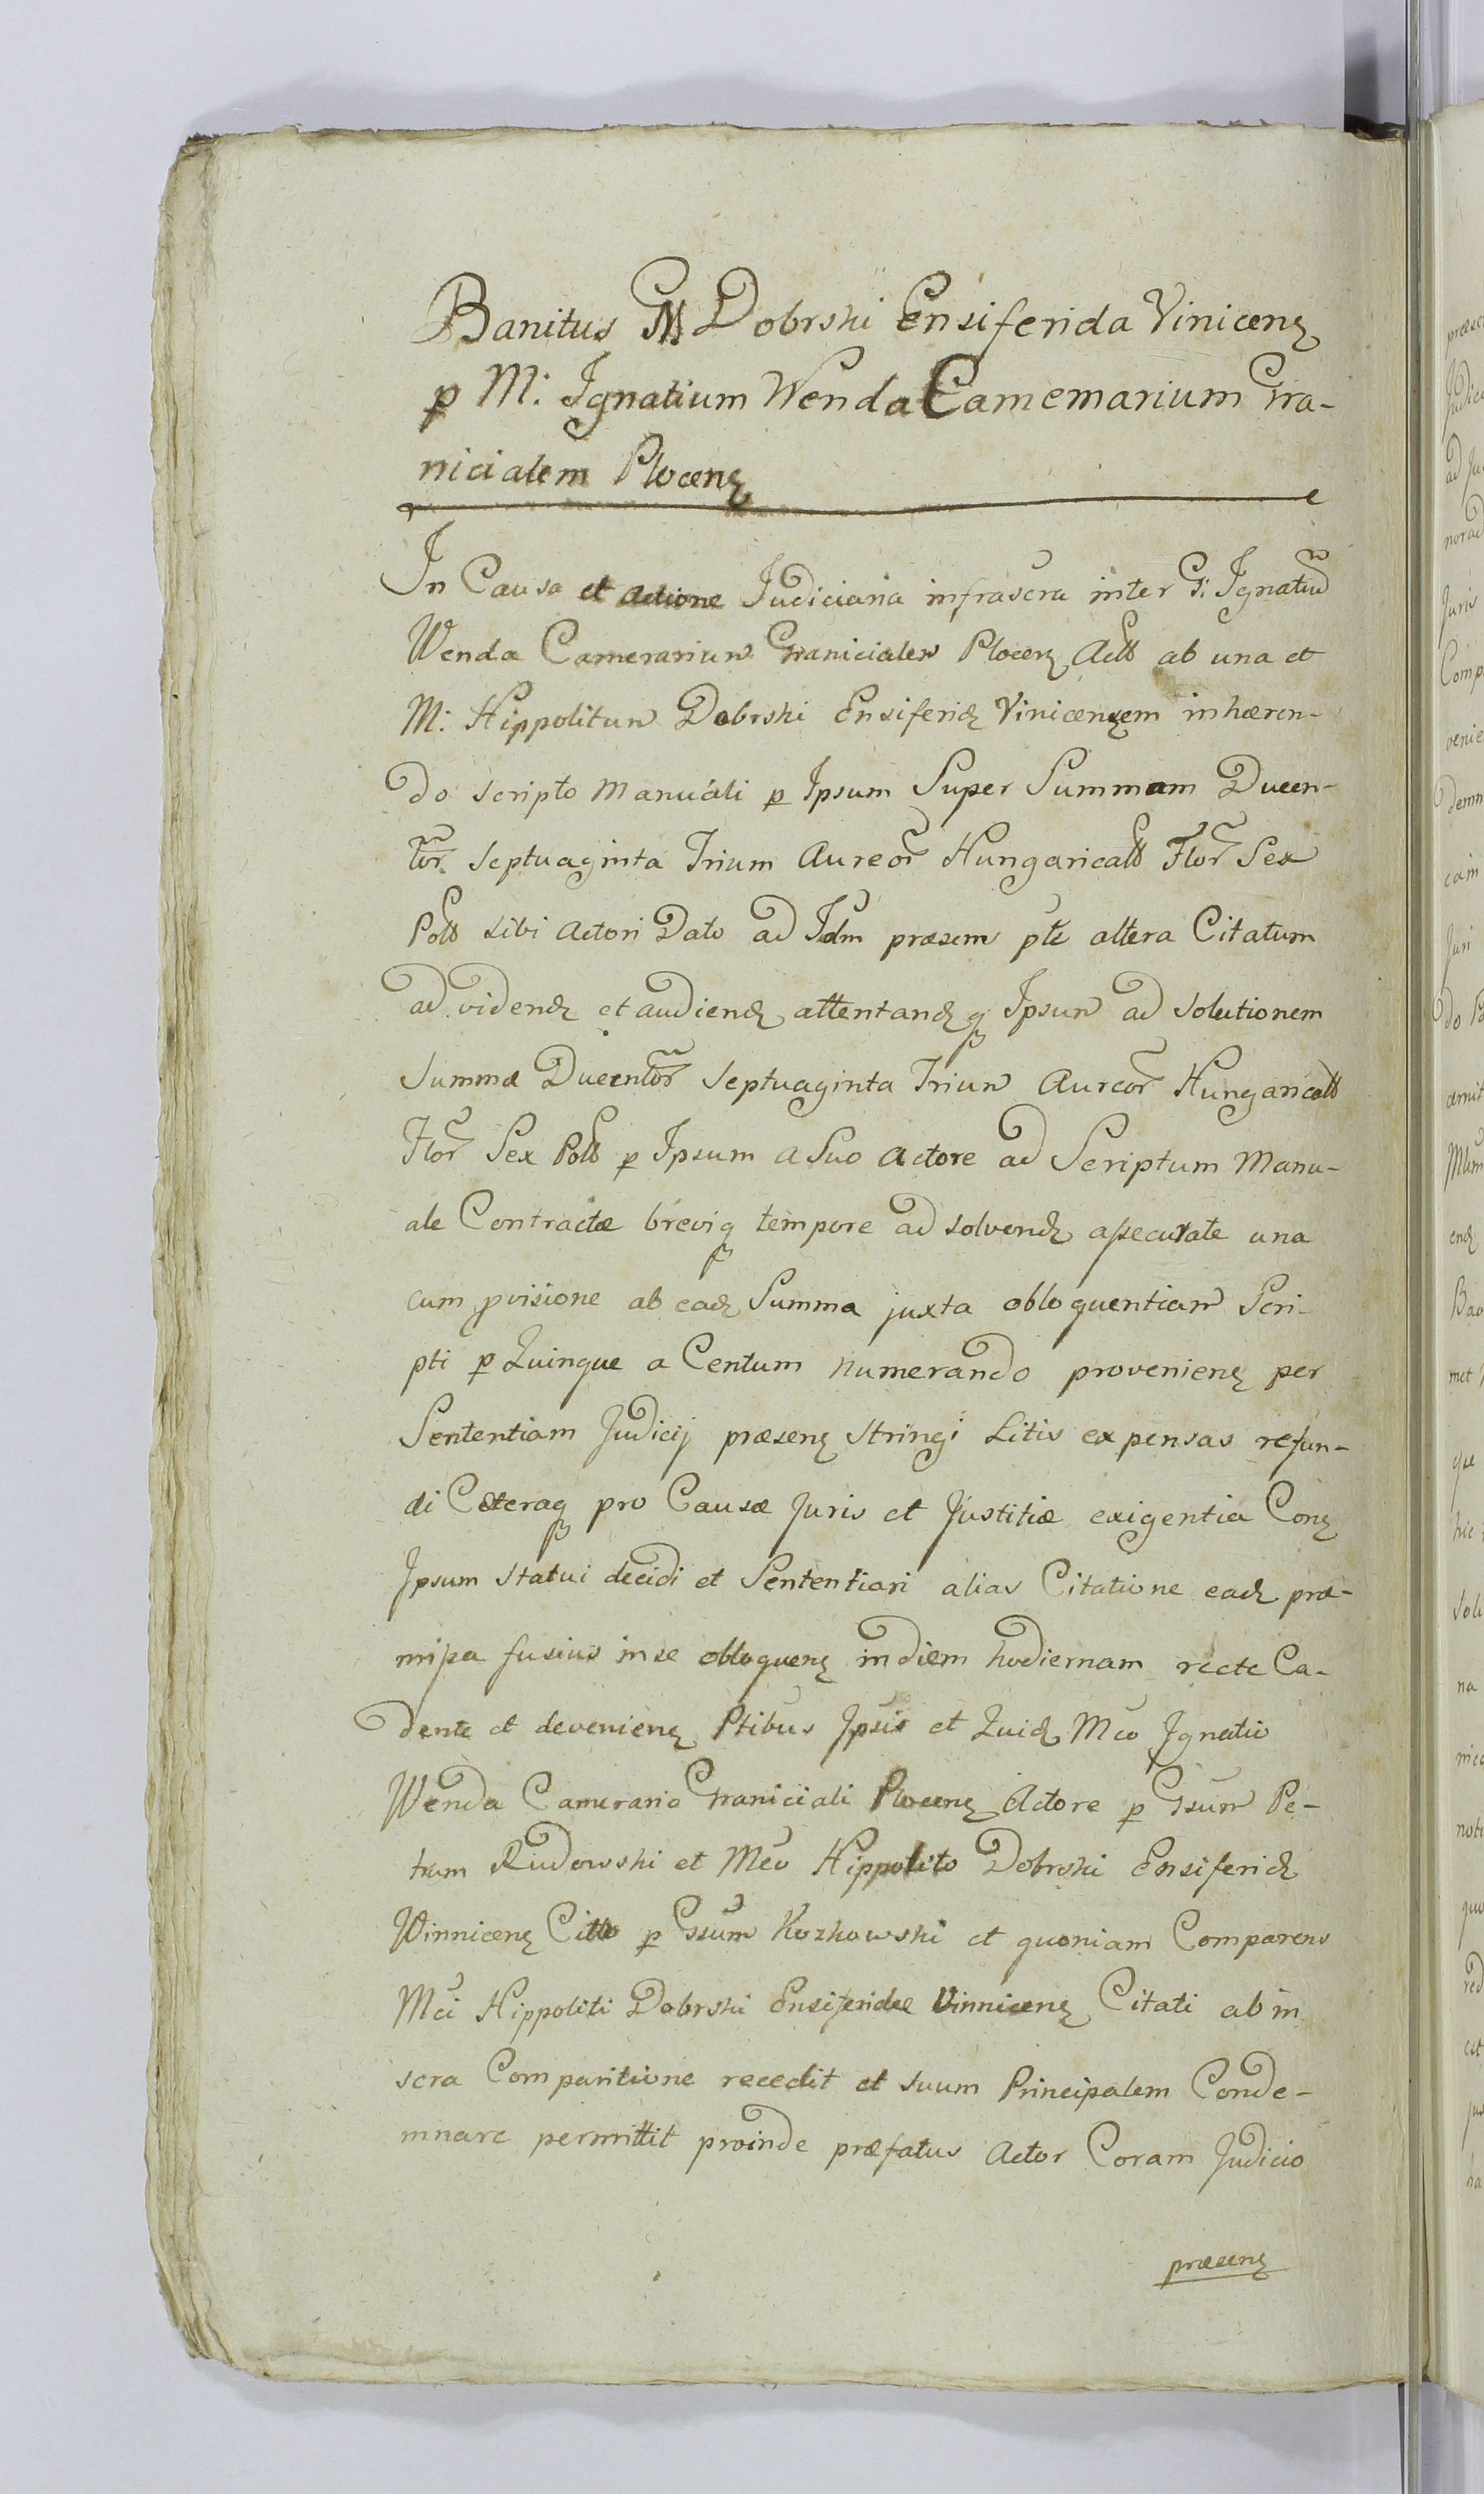 Banitus M Dobrski Ensiferida Vinicenȩ
p M: Ignatium Wenda Camemarium Gra-
nicialem Plocenȩ
In Causa et actione Judiciaria infrascra inter G: Ignatiu
Wenda Camerarium Granicialem Plocenȩ Actt ab una et
M: Hippolitum Dobrski Ensiferidȩ Vinicenȩem inhæren-
do scripto manuali p Ipsum Super Summam Ducen-
tor Septuaginta Trium Aureor Hungaricall Flor Sex
Poll sibi Actori Dato ad Idm præsem pte altera Citatum
ad videndȩ et audiendȩ attentandȩq Ipsum ad solutionem
Summæ Ducentor Septuaginta Trium Aureor Hungaricall
Flor Sex Poll p Ipsum a Suo Actore ad Scriptum Manu-
ale Contractæ breviq tempore ad solvendȩ assecuratæ una
cum pvisione ab eadȩ Summa juxta obloquentiam Scri-
pti p Quinque a Centum numerando provenienȩ per
Sententiam Judicij præsenȩ stringi Litis expensas refun-
di Cæteraq pro Causæ Juris et Justitiæ exigentia Conȩ
Ipsum statui decidi et Sententiari alias Citatione eadȩ præ-
missa fusius in se obloquenȩ in diem hodiernam recte Ca-
dente et devenienȩ Ptibus Ipsis et Quidȩ Mco Ignatio
Wenda Camerario Graniciali Plocenȩ Actore p Gsum Pe-
trum Rudowski et Mco Hippolito Dobrski Ensiferidȩ
Winnicenȩ Citto p Gsum Kozkowski et quoniam Comparens
Mci Hippoliti Dobrski Ensiferidæ Vinnicenȩ Citati ab in
scra Comparitione recedit et suum Principalem Conde-
mnare permittit proinde præfatus Actor Coram Judicio
præsenȩ